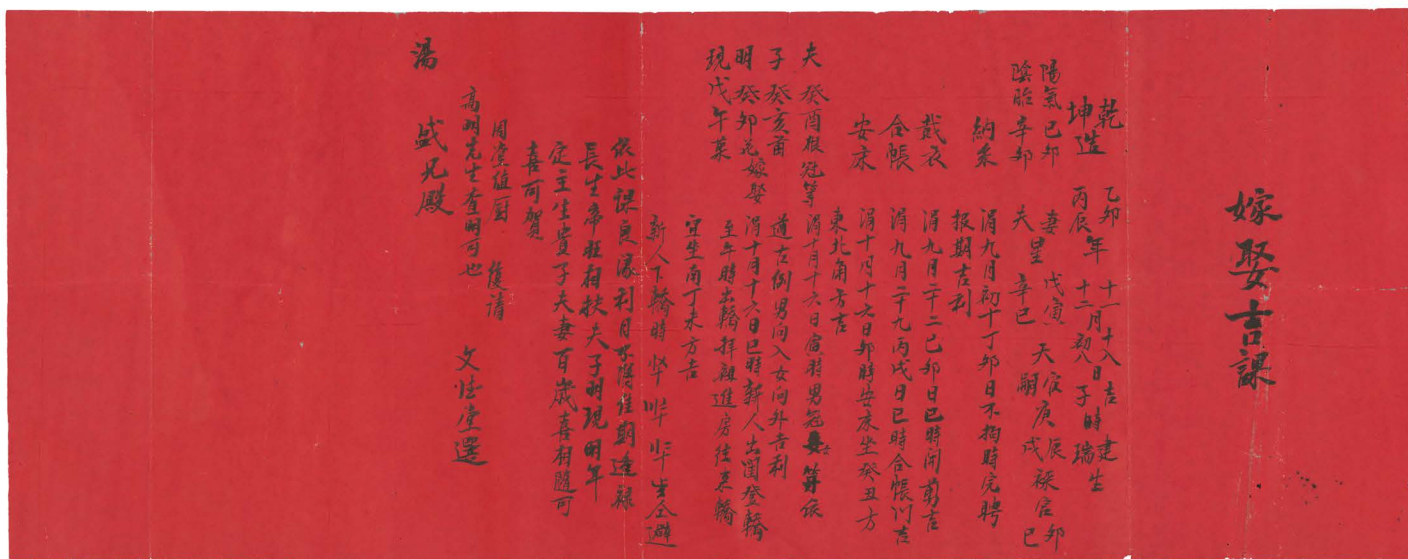 嫁娶吉課
乾 乙卯年 十一月十八日吉時建生
坤造 丙辰年 十二月初八子時瑞
陽氣己卯 妻戊寅 天官庚辰 祿官卯
陰胎辛卯 夫星辛巳 嗣戊 巳
納采 涓九月初十丁卯日不拘時完聘
報期吉利
裁衣 涓九月二十二己卯日巳時開剪吉
合帳 涓九月二十九丙戌日巳時合帳吉
安床 涓十月十六日卯時安床坐癸丑方
東北角方吉
夫 癸酉根 冠笄 涓十月十六日寅時男冠女笄依
子 癸亥苗 道古例男向入女向外吉利
明 癸卯花 嫁娶 涓十月十六日巳時新人出閨登轎
現 戊午菓 至午時出轎拜祖進房往來轎
宜坐南丁未方吉
新人下轎時 生人避
依此課良深利日不勝佳期達祿
長生帝旺相扶夫子明現明年
定主生貴子夫妻百歲喜相隨可
喜可賀
周堂值厨 復請
高明先生查明可也 文 堂選
湯 盛兄殿